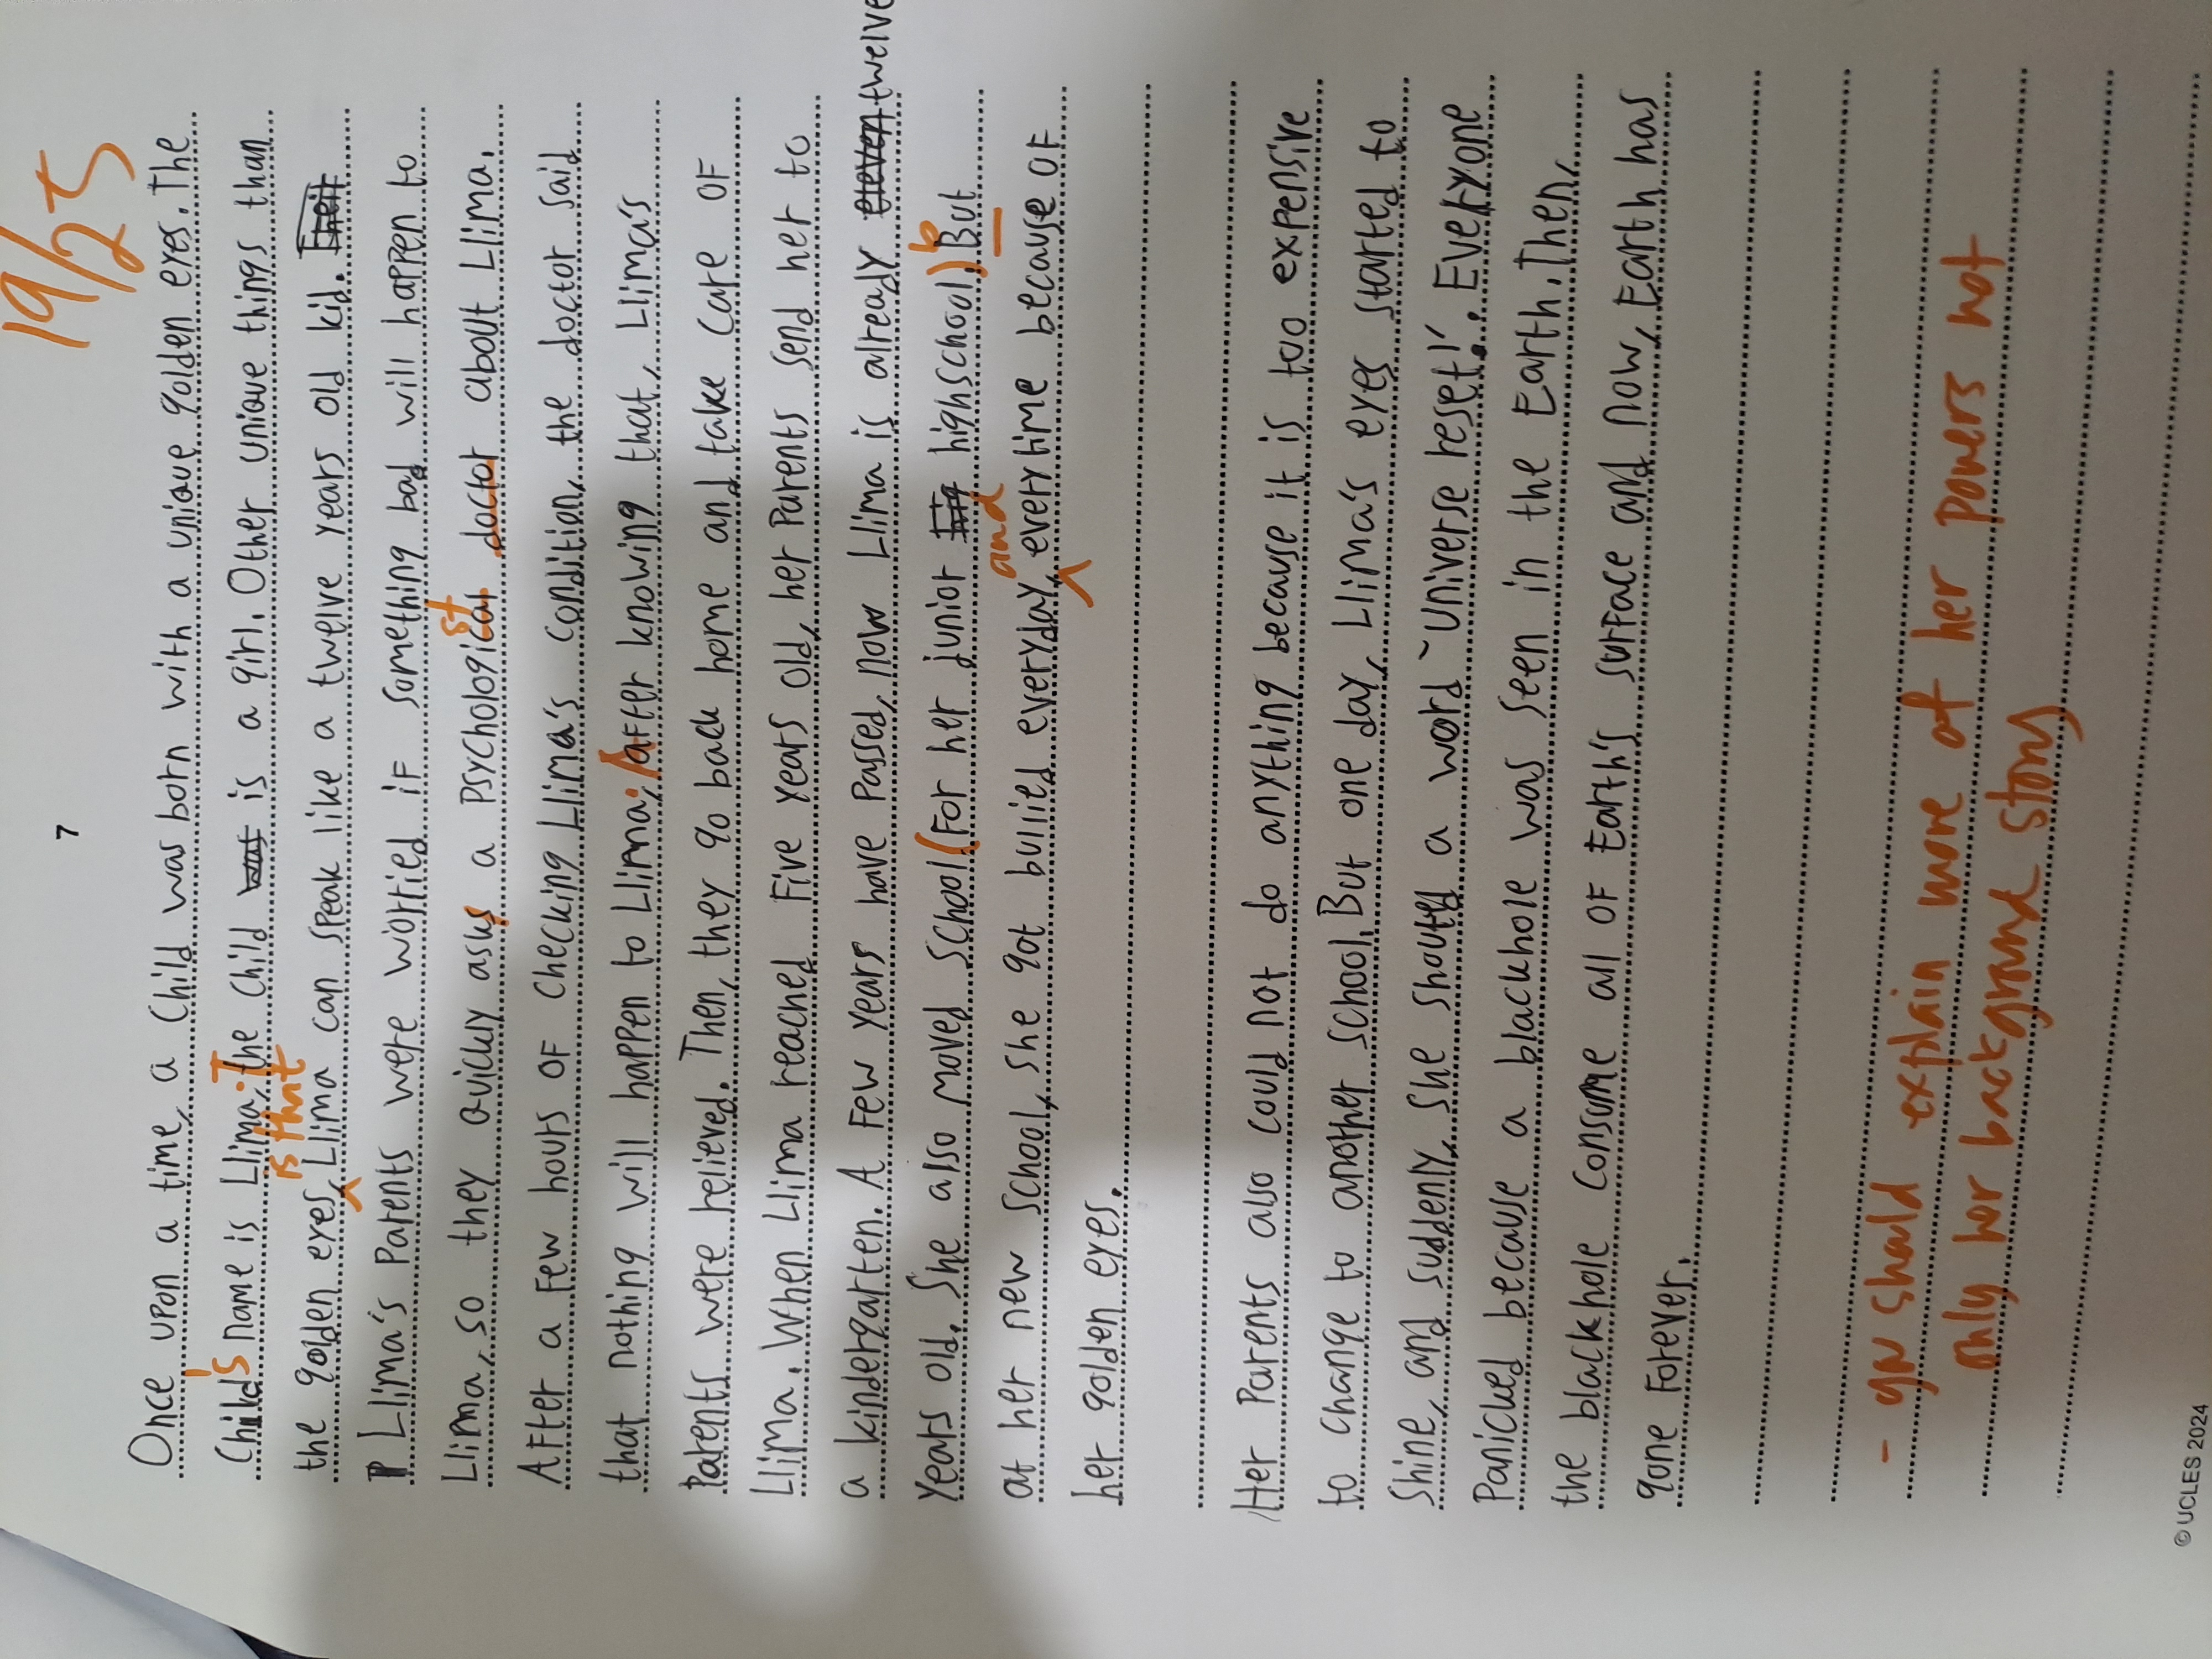 7
19/25
Once upon a time, a child was born with a unique golden eyes. The
Child's name is Llima. The child was is a girl. Other unique things than
is that
the golden eyes, Llima can speak like a twelve years old kid.
Llima's Parents were worried if something bad will happen to
st
Llima, so they quickly asks a Psychological doctor about Llima.
After a few hours of checking Llima's condition, the doctor said
that nothing will happen to Llima. After knowing that, Llima's
Parents were relieved. Then, they go back home and take care of
Llima. When Llima reached five years old, her Parents send her to
a kindergarten. A few years have passed, now Llima is already eleven twelve
years old. She also moved school (For her junior highschool). But
b
and
at her new school, she got bullied everyday, everytime because of
her golden eyes.
Her Parents also could not do anything because it is too expensive
to change to another school. But one day, Llima's eyes started to
shine, and suddenly, she shouted a word "Universe reset!". Everyone
Panicked because a blackhole was seen in the Earth. Then,
the blackhole consume all of Earth's surface and now, Earth has
gone forever.
- you should explain more of her powers not
only her background story
© UCLES 2024